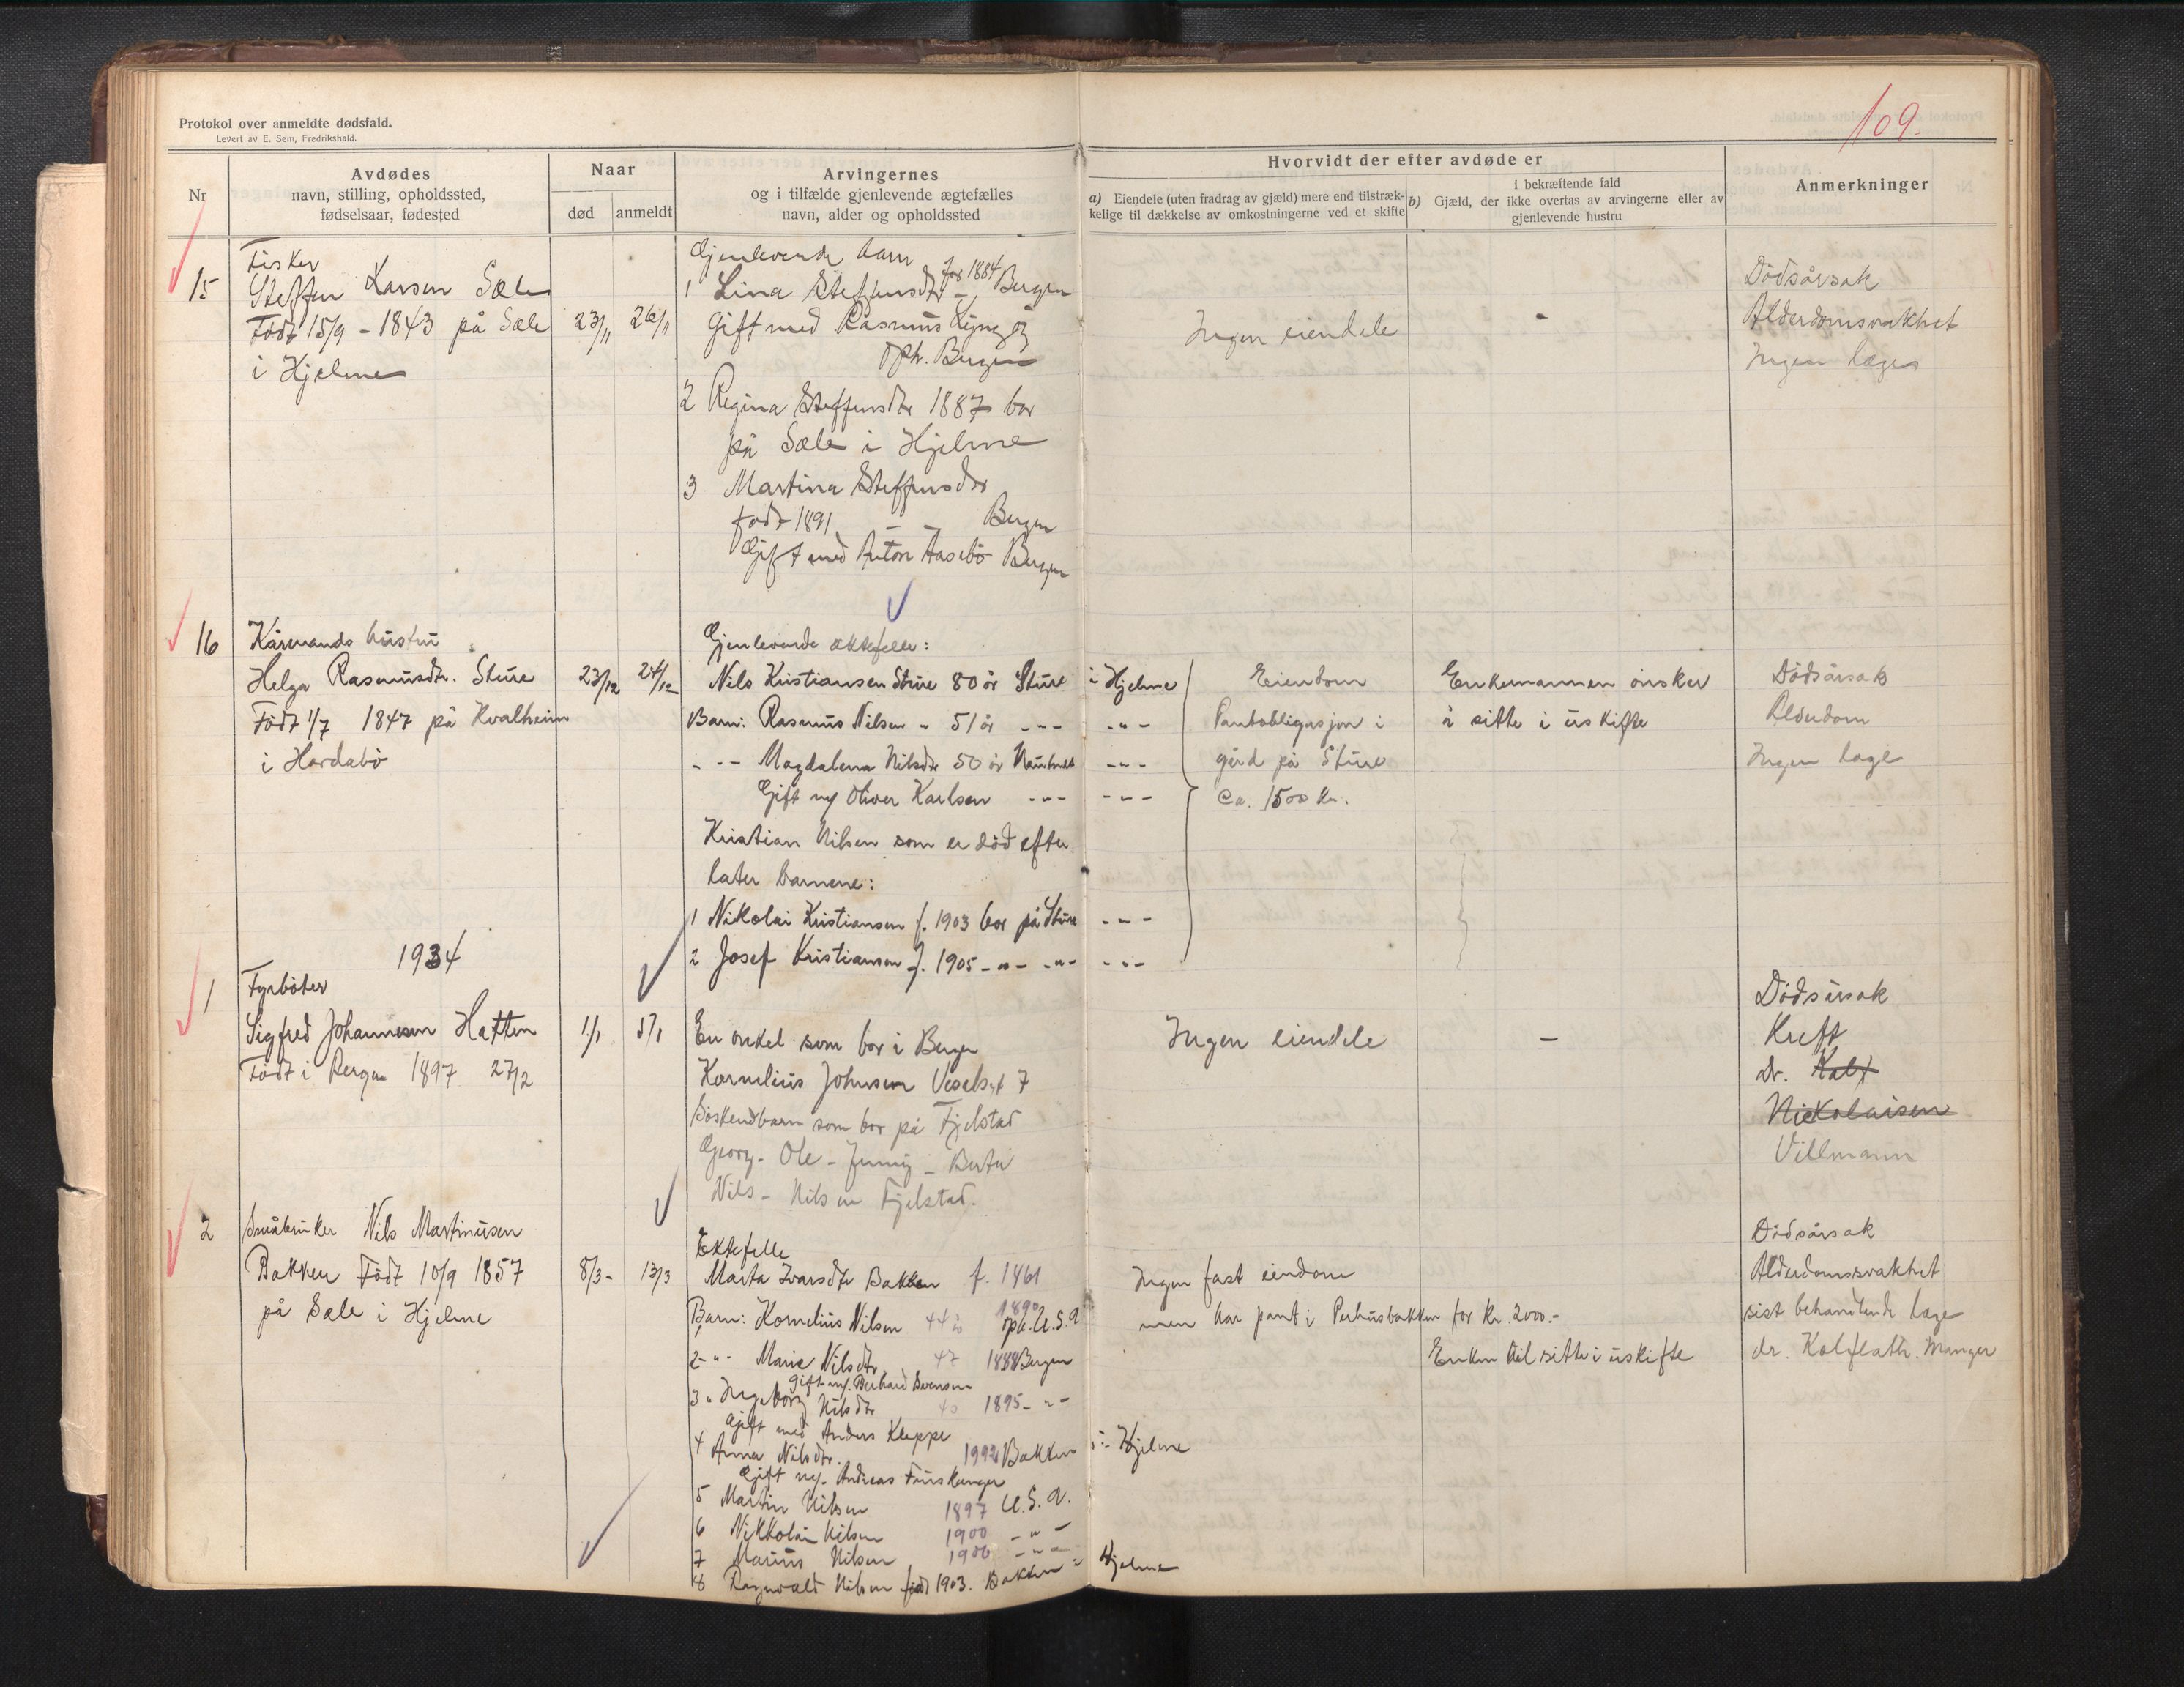 Protokol over anmeldte dødsfald.
Levert av E. Sem, Fredrikshald.
109.
Nr
Avdødes
navn, stilling, opholdssted,
fødselsaar, fødested
Naar
død
anmeldt
Arvingernes
og i tilfælde gjenlevende ægtefælles
navn, alder og opholdssted
Hvorvidt der efter avdøde er
a) Eiendele (uten fradrag av gjæld) mere end tilstræk-
kelige til dækkelse av omkostningerne ved et skifte
i bekræftende fald
b) Gjæld, der ikke overtas av arvingerne eller av
gjenlevende hustru
Anmerkninger
15
Fisker
Steffen Larsen Sæle
Født 15/9 - 1843 på Sæle
i Hjelme
23/11
26/11
Gjenlevende barn
1 Lina Steffensdtr før 1884 Bergen
Gift med Rasmus
Oph. Bergen
2 Regina Steffensdtr 1887 bor
på Sæle i Hjelme
3 Martina Steffensdtr
født 1891 - - Bergen
Gift med Anton Aasebö Bergen
Ingen eiendele
-
Dödsårsak
Alderdomsvakhet
Ingen læge
16
Kårmands hustru
Helga Rasmusdtr. Sture
Født 1/7 1847 på Kvalheim
i Hordabö
23/12
24/12
Gjenlevende ektefelle:
Nils Kristiansen Sture 80 år Sture i Hjelme
Barn: Rasmus Nilsen - 51 år - - - - " -
- " - Magdalena Nilsdtr 50 år Nautnes - " -
Gift m/ Oliver Karlsen - " - - " -
Kristian Nilsen som er död efter
later barnene:
1 Nikolai Kristiansen f. 1903 bor på Sture - " -
2 Josef Kristiansen f. 1905 - " - - " - - " -
Eiendom
Pantobligasjon i
gård på Sture
Ca. 1500 kr.
Enkemannen önsker
å sitte i uskifte
Dödsårsak
Alderdom
Ingen læge
1934
1
Fyrböter
Sigfred Johannesen Hatten
Født i Bergen 1897 27/2
1/1
5/1
En onkel som bor i Bergen
Kornelius Johnsen Veselvst 7
Söskendbarn som bor på Fjelstad
Georg - Ole - Jenny - Berta
Nils - Nilsen Fjelstad.
Ingen eiendele
-
Dödsårsak
Kreft
Dr. Kalf
Nickolaisen
Villmann
2
Småbruker Nils Martinusen
Bakken Født 10/9 1857
på Sæle i Hjelme
8/3 -
13/3
Ektefelle
Marta Ivarsdtr Bakken f. 1861
Barn: 1 Kornelius Nilsen 44 år 1890 oph. U.S.A
2 - " - Marie Nilsdtr. 47 1888 Bergen
gift m/. Berhard Svensen
3 " Ingeborg Nilsdtr 40 1895 - " -
Gift med Anders Kleppe
4 Anna Nilsdtr. 1992 Bakken i Hjelme
Gift m/. Andreas
5 Martin Nilsen 1897 U.S.A.
6 Nikkolai Nilsen 1900 - " -
7 Marius Nilsen 1900 - " -
8 Ragnvald Nilsen född 1903. Bakken i Hjelme
Ingen fast eiendom
men har pant i Perhusbakken for kr. 2000.-
Enken vil sitte i uskifte
Dödsårsak
Alderdomssvakhet
sist behandlende læge
dr. Kalflath. Manger